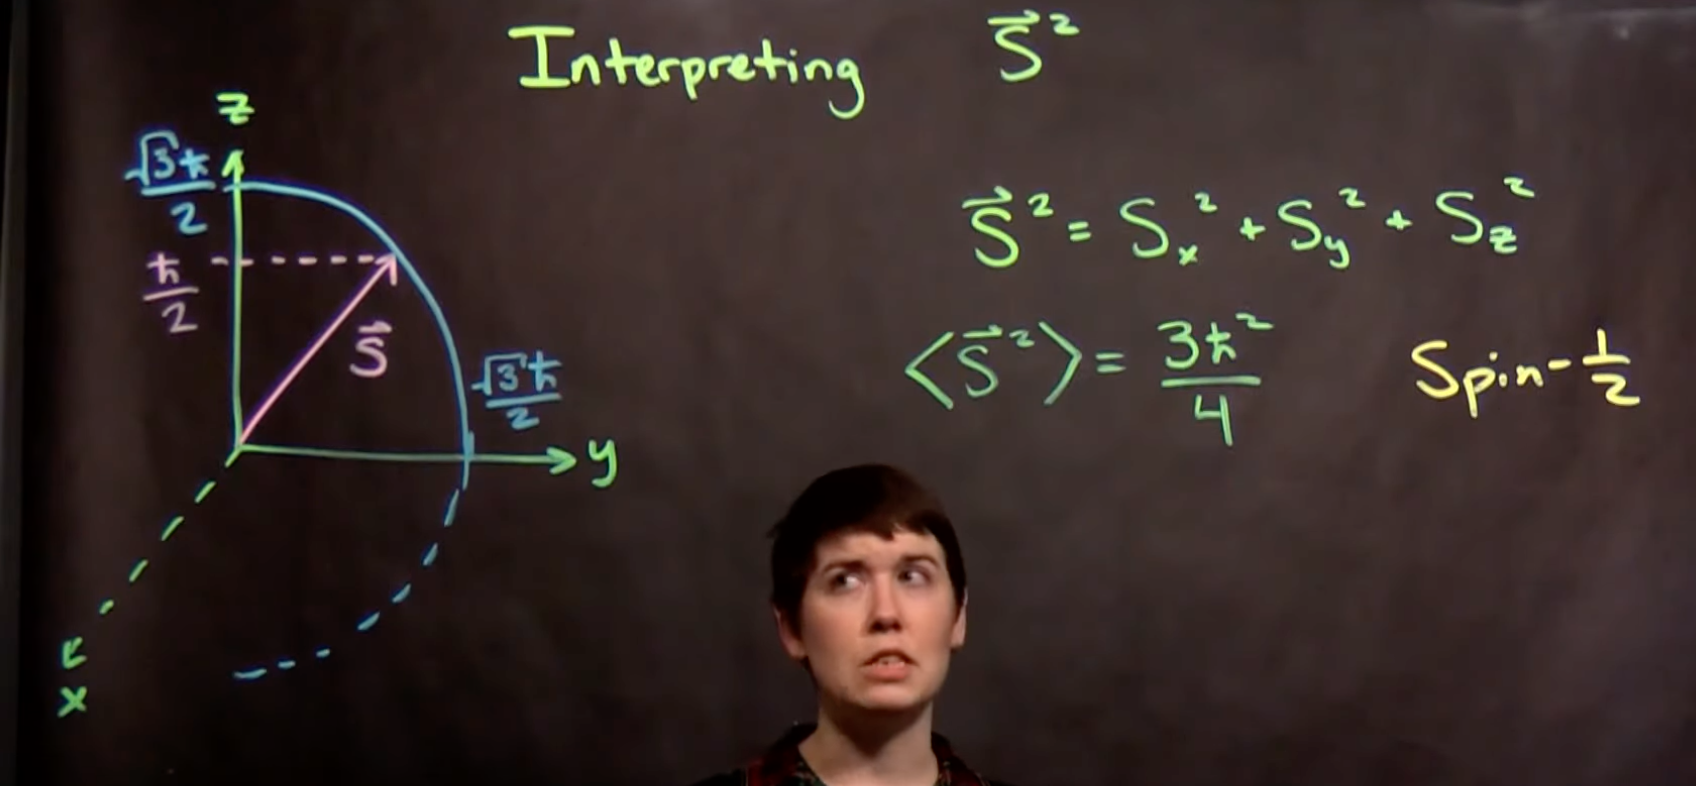 Interpreting S⃗²
z
√3ħ/2
ħ/2
S⃗
√3ħ/2
y
x
S⃗² = Sₓ² + S_y² + S_z²
⟨S⃗²⟩ = 3ħ²/4
Spin-1/2